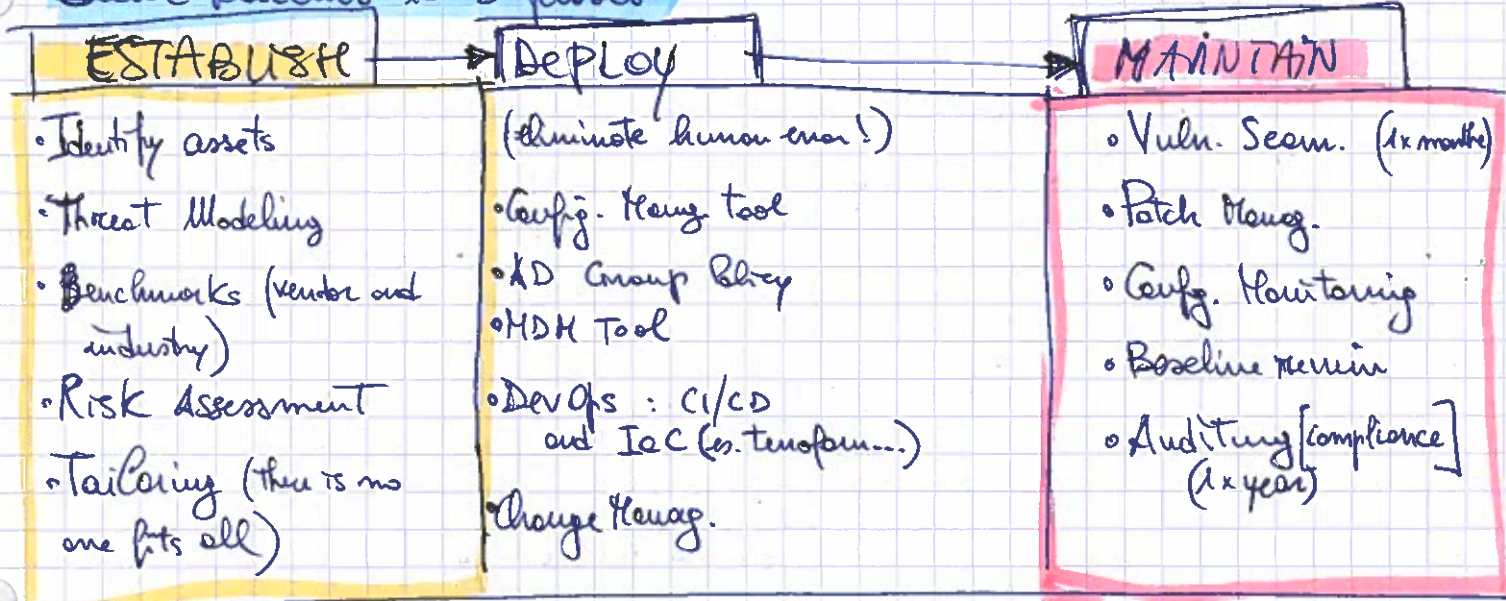 ESTABLISH
• Identify assets
• Threat Modeling
• Benchmarks (vendor and
industry)
• Risk Assessment
• Tailoring (there is no
one fits all)
Deploy
(eliminate human error!)
• Config. Manag. tool
• AD Group Policy
• MDM Tool
• DevOps : CI/CD
and IaC (es. terraform...)
• Change Manag.
MAINTAIN
• Vuln. Scann. (1x months)
• Patch Manag.
• Config. Monitoring
• Baseline review
• Auditing [compliance]
(1x year)